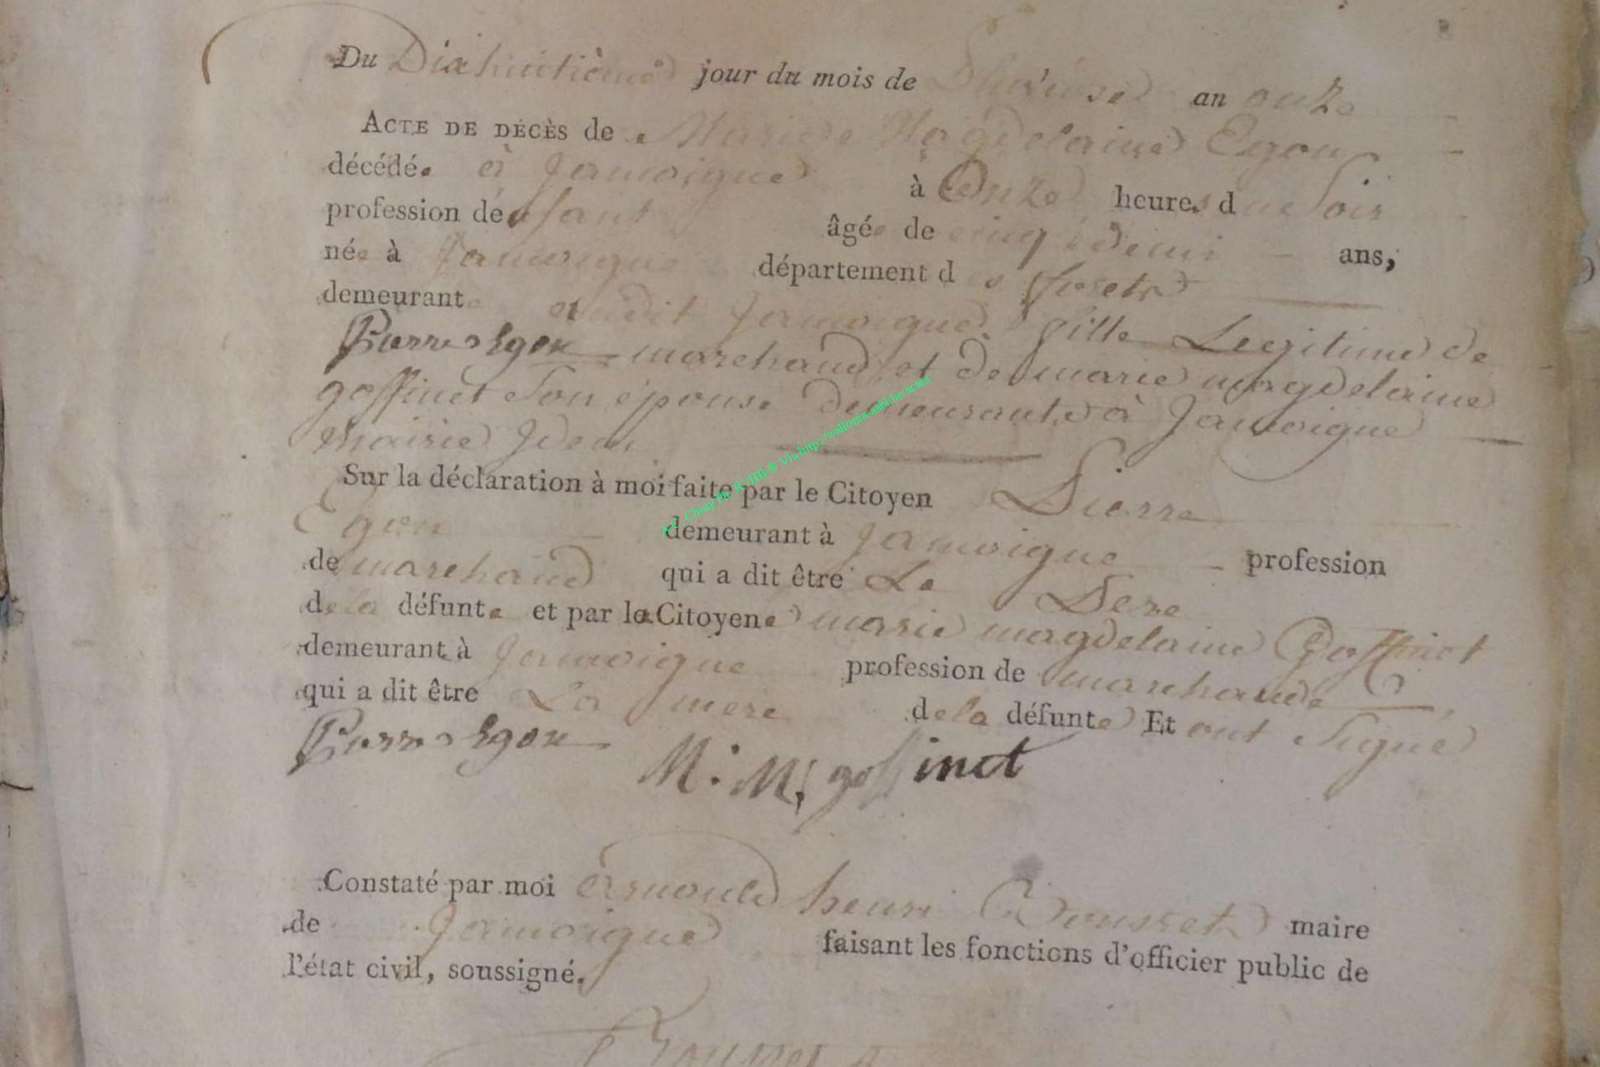 Du Dixhuitième jour du mois de Pluviose an onze
ACTE DE DÉCÈS de Marie Magdelaine Egon
décédée à Jamoigne à Onze heures du Soir
profession de âgée de cinq et demi ans,
née à Jamoigne département des forets
demeurante audit Jamoigne fille Legitime de
Pierre Egon marchand et de marie magdelaine
goffinet Son épouse demeurante à Jamoigne
Mairie Idem
Sur la déclaration à moi faite par le Citoyen Pierre
Egon demeurant à Jamoigne profession
de marchand qui a dit être Le Pere
de la défunte et par la Citoyene marie magdelaine Goffinet
demeurant à Jamoigne profession de marchande
qui a dit être La mere de la défunte Et ont Signé
Pierre Egon M: M: goffinet
Constaté par moi henri maire
de Jamoigne faisant les fonctions d'officier public de
l'état civil, soussigné.